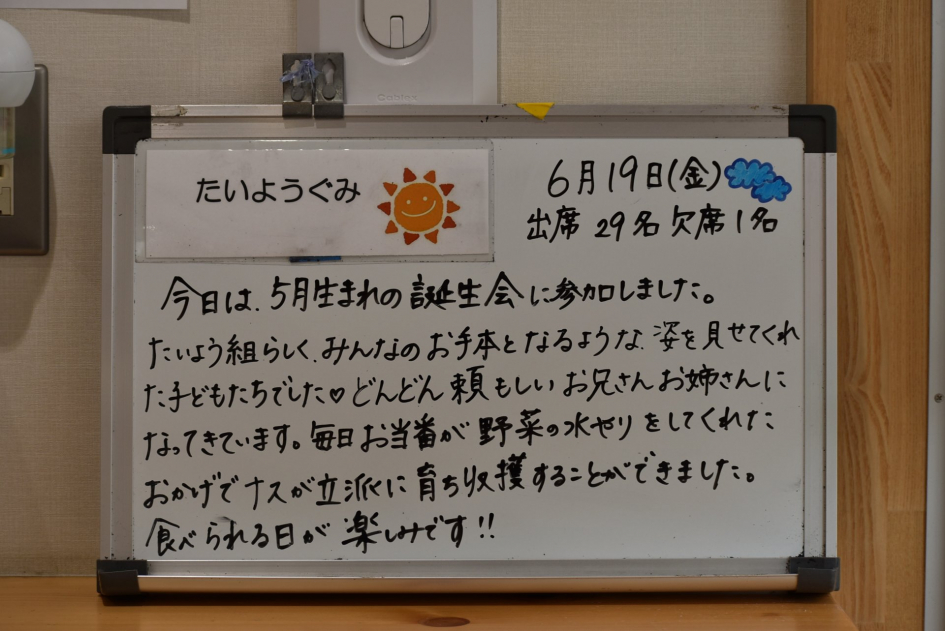 Cablex
たいようぐみ
6月19日(金)
出席 29名 欠席1名
今日は、5月生まれの誕生会に参加しました。
たいよう組らしく、みんなのお手本となるような、姿を見せてくれ
た子どもたちでした♡どんどん頼もしいお兄さんお姉さんに
なってきています。毎日お当番が野菜の水やりをしてくれた
おかげでナスが立派に育ち収獲することができました。
食べられる日が楽しみです!!